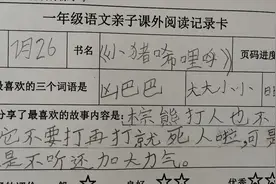 一年级语文亲子课外阅读记录卡
1月26 书名 《小猪唏哩呼》 页码进度
最喜欢的三个词语是 凶巴巴 大大小小
分享了最喜欢的故事内容是: 棕熊打人也不
它不要打再打就死人啦,可是
是不听还加大力气。